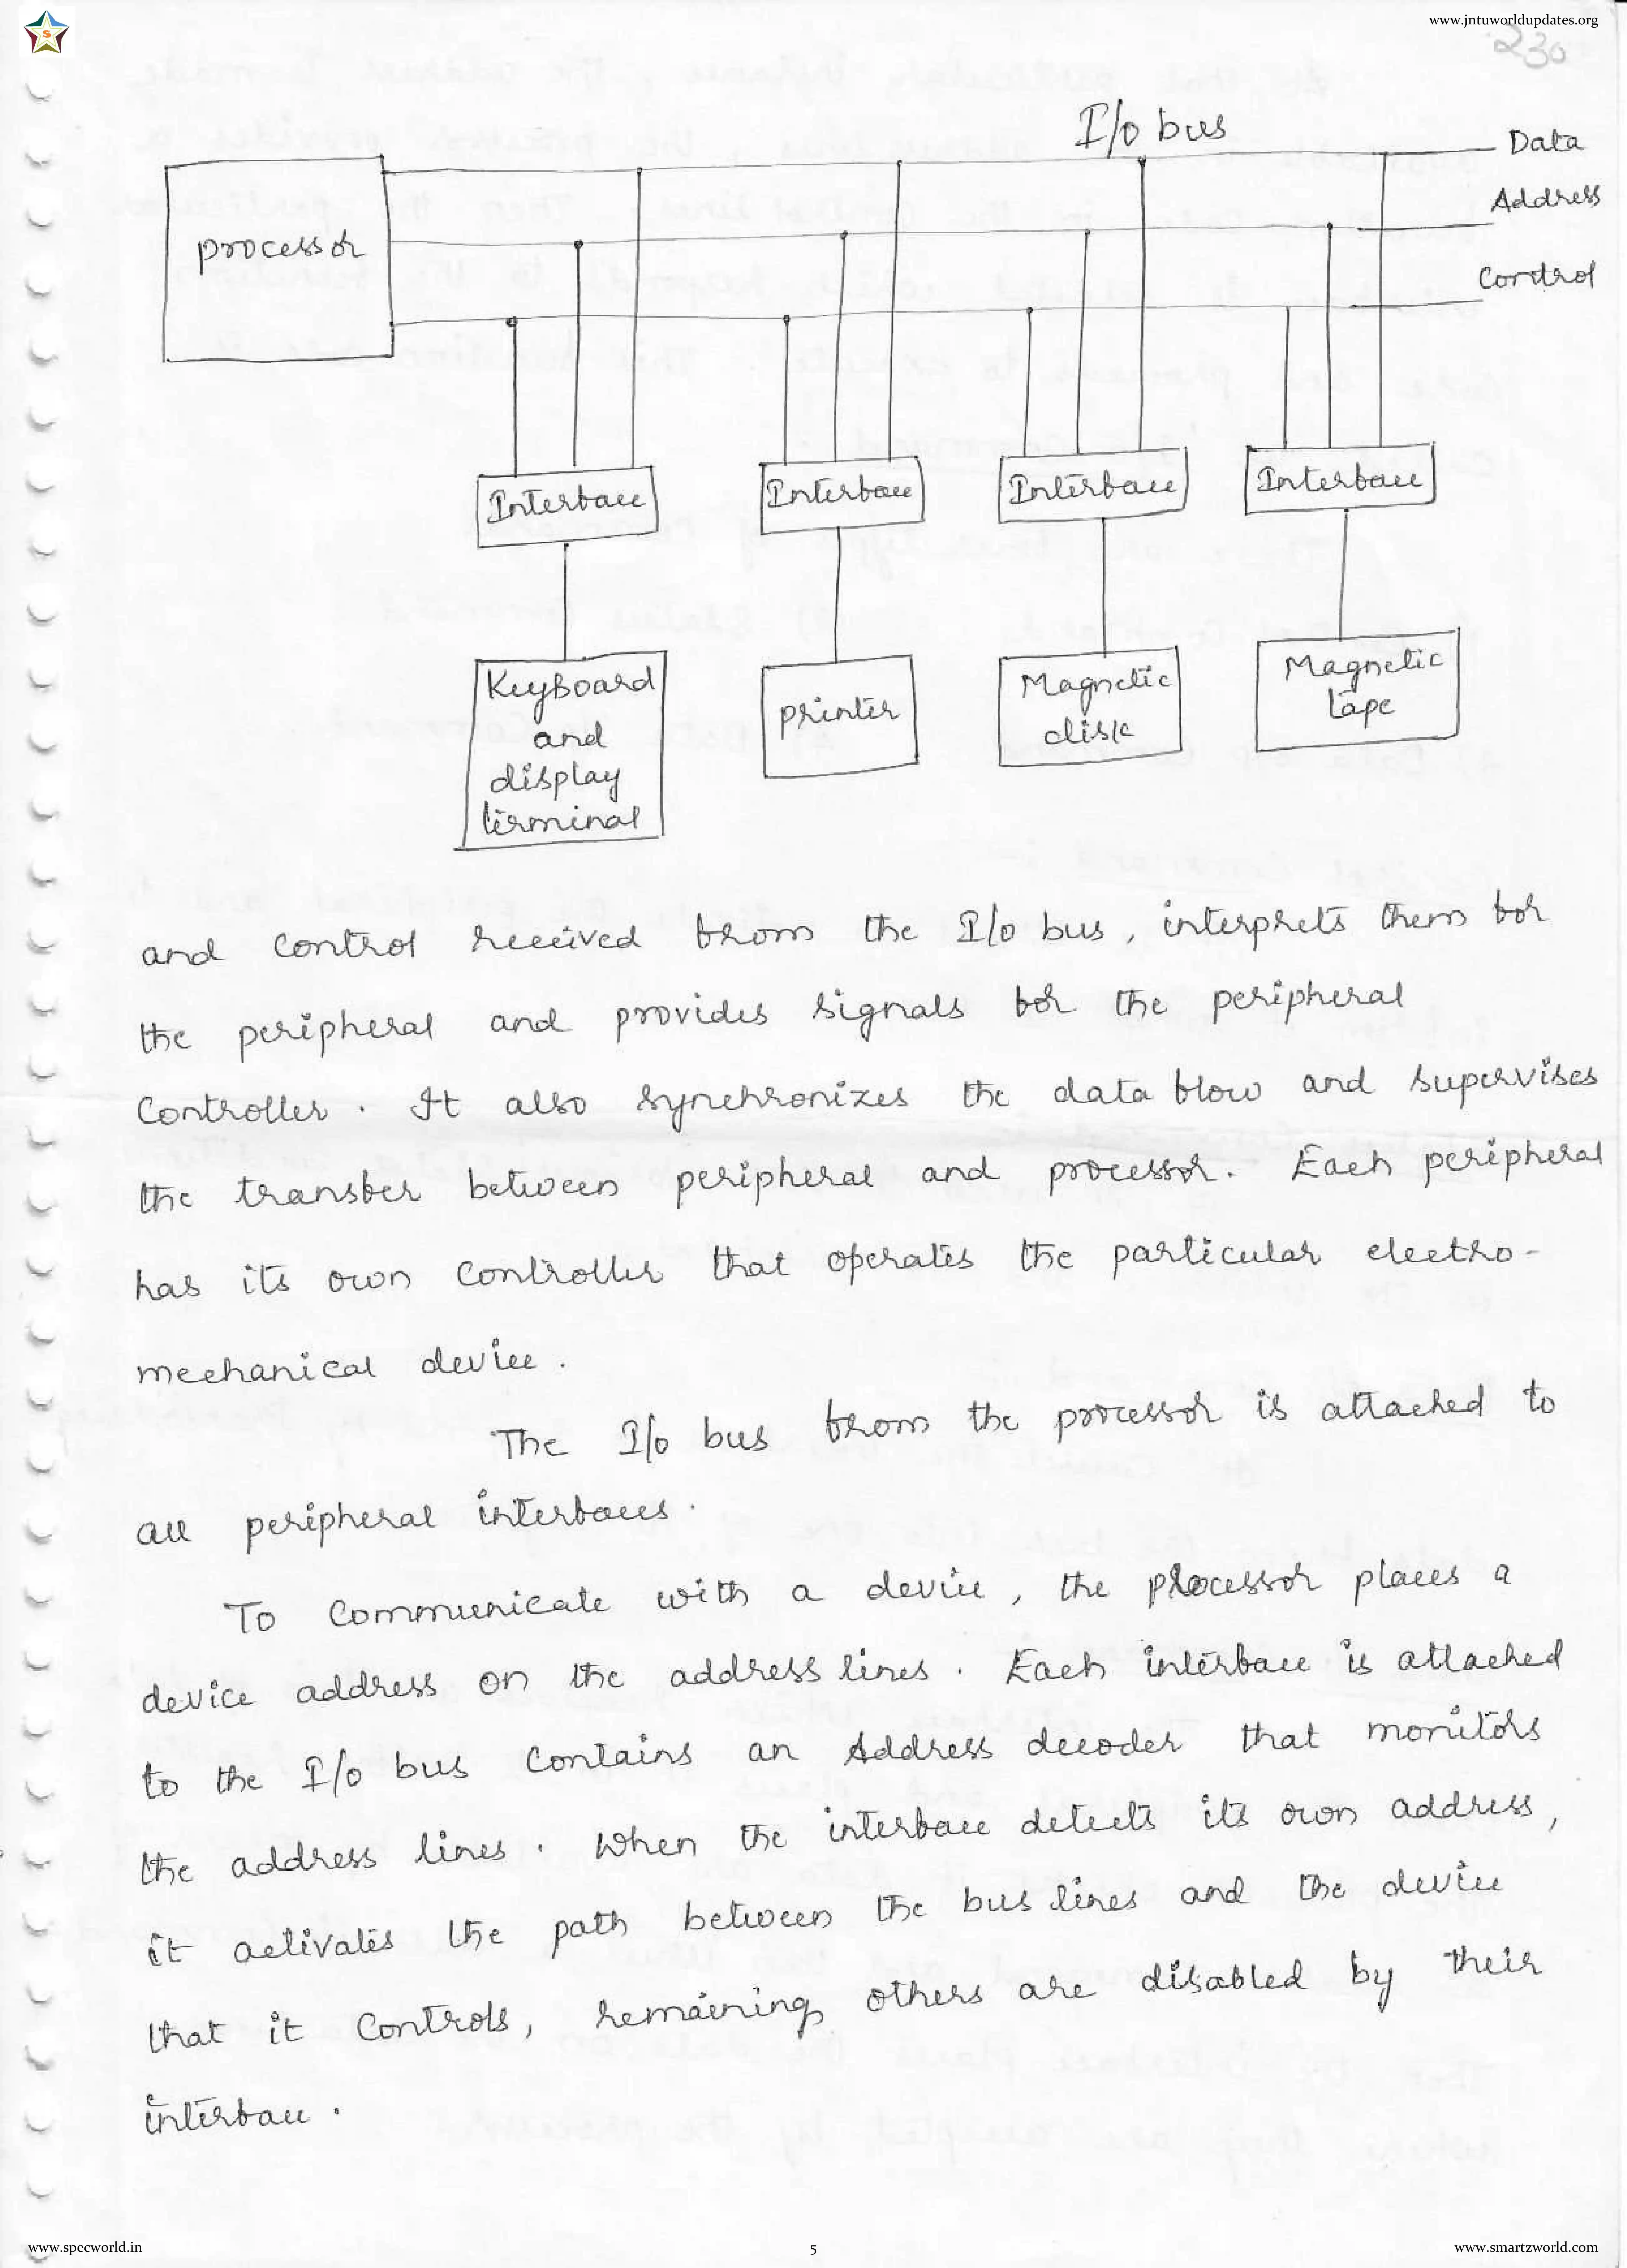 www.jntuworldupdates.org
S
230
I/o bus
Data
Address
Control
processor
Interface
Interface
Interface
Interface
Keyboard
and
display
terminal
printer
Magnetic
disk
Magnetic
tape
and control received from the I/o bus, interprets them for
the peripheral and provides signals for the peripheral
Controller. It also synchronizes the data flow and supervises
the transfer between peripheral and processor. Each peripheral
has its own Controller that operates the particular electro-
mechanical device.
The I/o bus from the processor is attached to
all peripheral interfaces.
To Communicate with a device, the processor places a
device address on the address lines. Each interface is attached
to the I/o bus Contains an Address decoder that monitors
the address lines. When the interface detects its own address,
it activates the path between the bus lines and the device
that it Controls, remaining others are disabled by their
interface.
www.specworld.in
5
www.smartzworld.com